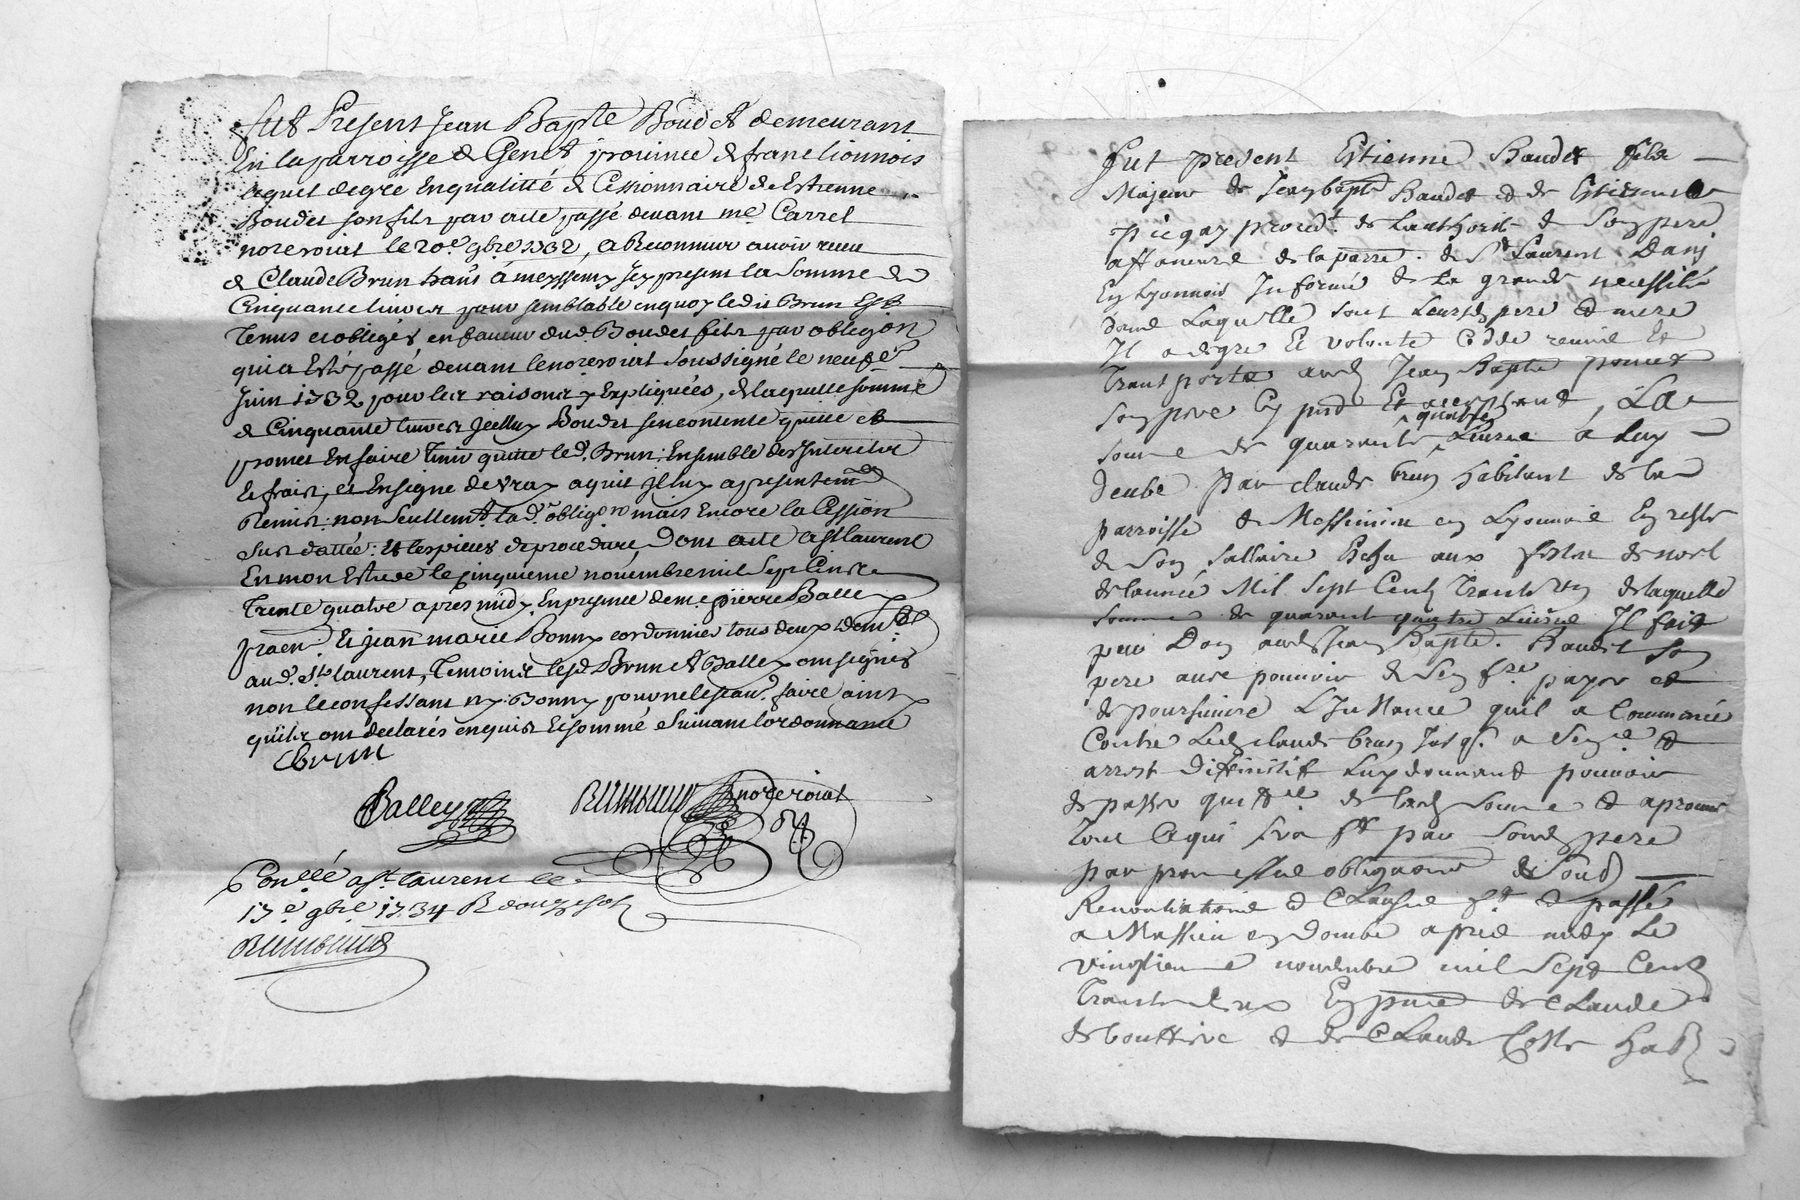 fut Present Jean Bapte Boudet demeurant
En la parroisse de Genet province de franclionnois
lequel degre en qualitté de Cessionnaire de Estienne
Boudet son fils par acte passé devant me Carrel
nore roial le 20e 9bre 1732, a Reconnu avoir receu
de Claude Brun hant à meyssemy jcy present la Somme de
Cinquante livres pour semblable en quoy ledit Brun Est
Tenus et obligés en faveur dud. Boudet fils par obligon
qui a Esté passé devant le nore roial Soussigné le neufe
Juin 1732 pour les raisons y Expliquées, de laquelle somme
de Cinquante livres jcelluy Boudet se contente quitte et
promet En faire Tenir quitte led. Brun, Ensemble des Interests
Et frais, et En signe de vray a quit jl luy a presentemt
Remis non seullemt lad. obligon mais Encore la Cession
sus dattée. Et les pieces de procedure, Dont acte a St laurent
En mon Estude le cinquieme novembre mil Sept Cents
Trente quatre apres midy, En presence de me pierre Balley
praen. Et jean marie Bonny cordonnier tous deux demts
aud. St laurent, Temoins lesd. Brun et Balley ont signés
non le confessant ny Bonny pour ne le scavr. faire ainsy
qu'ils ont declarés enquis Et sommé Suivant l'ordonnance
CBrun
Balley nore roial
Conllé a St. laurent le
17e 9bre 1734 R
fut present Estienne Baudet fils
Majeur de Jean bapte Baudet et de
procedt. de Lauthorité de Son pere
affaneurs de la parre. de St Laurent Dans
En Lyonnois Informé de La grande necessité
Dans Laquelle sont Leursd pere et mere
Il a de gre Et volonté Cedde remis Et
Transporte aud Jean Bapte
son pere Cy pnt Et acceptant, La
quatre
somme de quarante Livres a Luy
Deube Par claude brun habitant de la
parroisse de Messimieu en Lyonnois En reste
de Son Sallaire Echu aux festes de noel
de lannée Mil Sept Cents Trente un de laquelle
Somme de quarante quatre Livres Il fait
pur Don aud Jean Bapte. Baudet Son
pere avec pouvoir de Sen fre payer et
de poursuivre LInstance quil a Commancée
Contre Led claude brun Jusq. a Sence &
arrest Diffinitif Luy donnant pouvoir
de passer quittce de lad Somme et aprouve
Tout Ce qui Sera ft par Sond pere
par promesse obligaons de Soud
Renontiations et Clauses ft et passé
a Messieu en Dombe apres midy Le
vingtieme novembre mil Sept Cents
Trente deux En pnce de Claude
de bouttieve et de Claude Coste hab